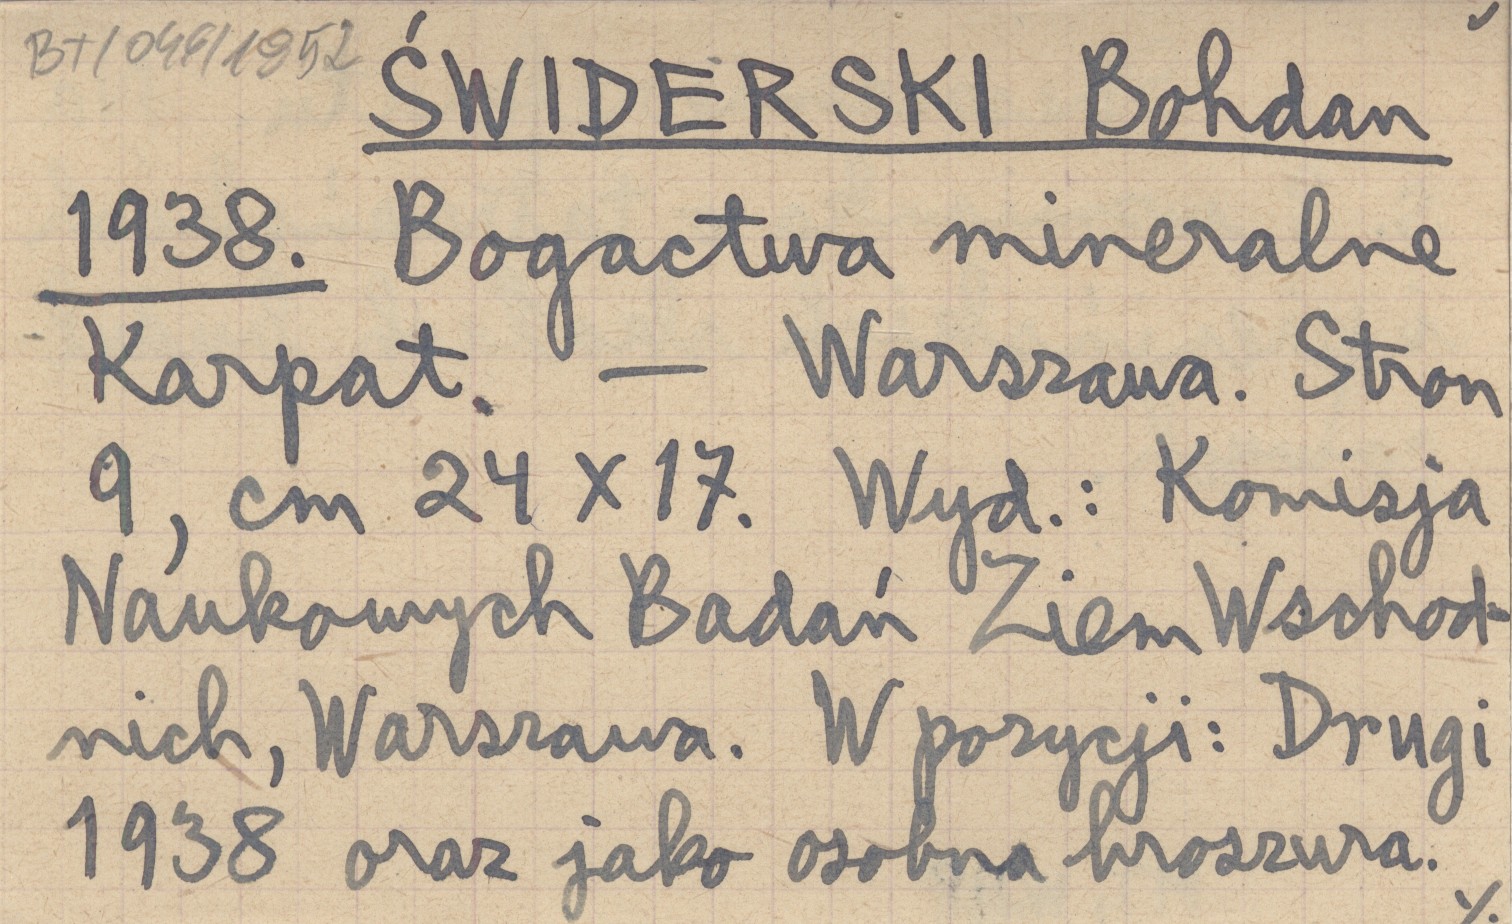 ŚWIDERSKI Bohdan
1938. Bogactwa mineralne
Karpat. — Warszawa. Stron
9, cm 24 x 17. Wyd.: Komisja
Naukowych Badań Ziem Wschod-
nich, Warszawa. W pozycji: Drugi
1938 oraz jako osobna broszura.